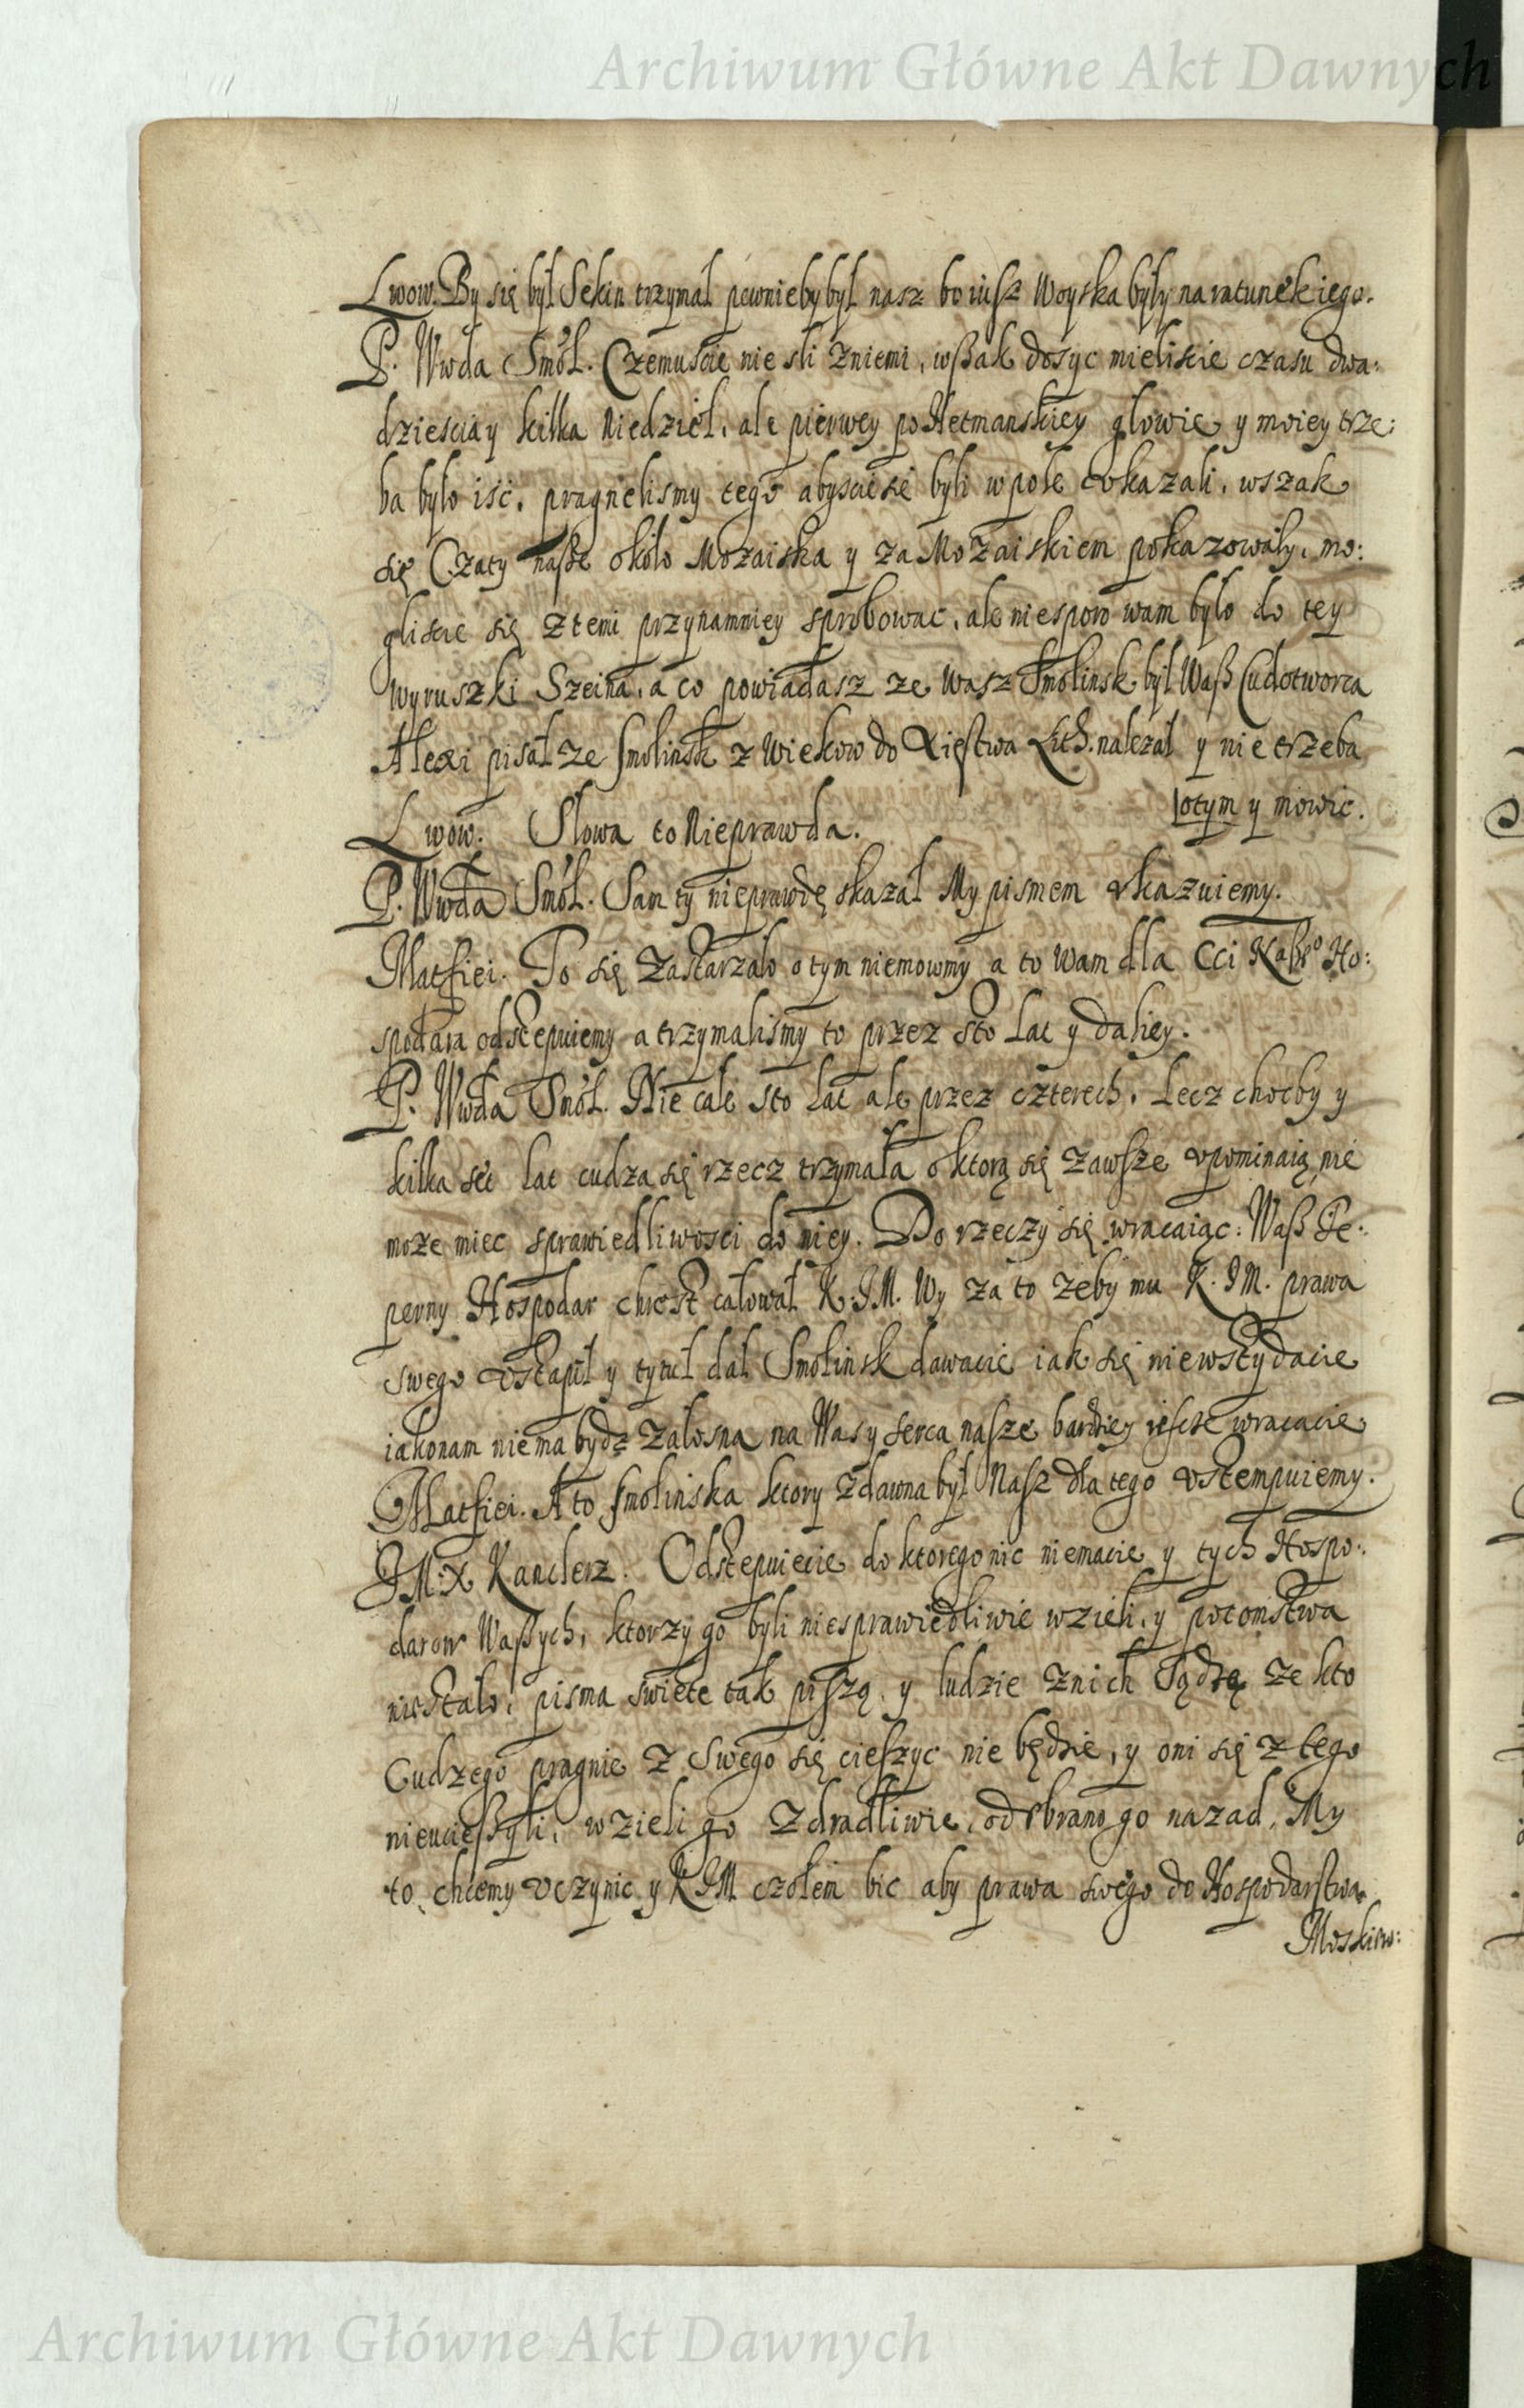 Archiwum Główne Akt Dawnych
Lwow. By się był Sekin trzymał pewnieby był nasz bo iusz Woyska były na ratunek iego.
P. Wwda Smol. Czemuscie nie sli zniemi, wßak dosyc mieliscie czasu dwa:
dziescia y kilka Niedziel, ale pierwey po Hetmanskiey głowie y moiey trze:
ba było isć, pragnelismy tego abyscie sie byli w pole vkazali, wszak
się Czaty naße około Mozaiska y za Mozaiskiem pokazowały, mo:
gliscie się z temi przynamniey sprobowac, ale niesporo wam było do tey
wyruszki Szeina, a co powiadasz ze Wasz Smolinsk, był Waß Cudotworca
Alexi pisał ze Smolinsk z wiekow do Xięstwa Lith. nalezał y nie trzeba
otym y mowic.
Lwow. Słowa to Nieprawda.
P. Wwda Smol. Sam ty nieprawdę skazał My pismem vkazuiemy.
Matfiei. To się zastarzało o tym niemowmy a to Wam dla Cci Naßo Ho:
spodara odstepuiemy a trzymalismy to przez sto Lat y daliey.
P. Wwda Smol. Nie całe sto Lat ale przez czterech. Lecz chocby y
kilka set lat cudza się rzecz trzymała o ktorą się zawsze vpominaią, nie
moze miec sprawiedliwosci do niey. Do rzeczy się wracaiąc: Waß Te:
perny Hospodar chrest całował K. JM. Wy za to zeby mu K. JM. prawa
swego vstąpił y tytuł dał Smolinsk dawacie iak się niewstydacie
iako nam niema bydz załosna na Was y serca nasze bardziey iescze wracacie
Matfiei. A to Smolinska ktory zdawna był Nasz dla tego vstempuiemy.
JM. X Kanclerz. Odstepuiecie do ktorego nic niemacie y tych Hospo:
darow Waßych, ktorzy go byli niesprawiedliwie wzieli, y potomstwa
niestało, pisma swięte tak piszą y ludzie znich sądzą ze kto
Cudzego pragnie z swego się cieszyc nie będzie, y oni się z tego
nieucießyli, wzieli go zdradliwie, odebrano go nazad, My
to chcemy vczynic y K JM czołem bic aby prawa swego do Hospodarstwa
Moskiew:
Archiwum Główne Akt Dawnych